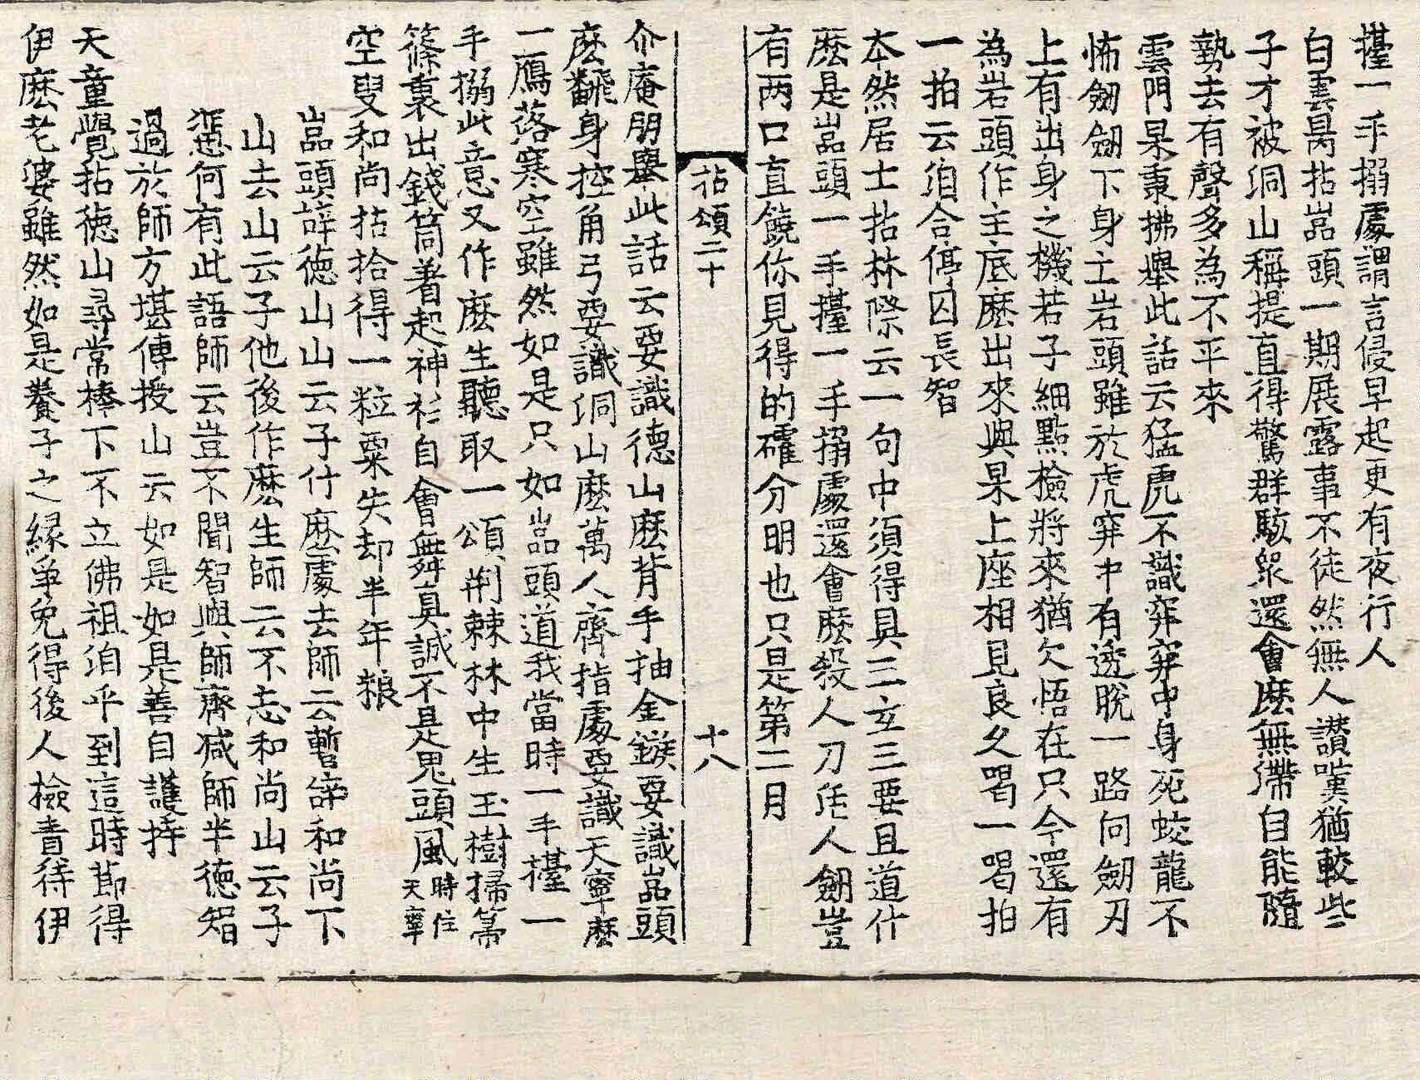 擡一手搦處謂言侵早起更有夜行人
白雲昺拈嵓頭一期展露事不徒然無人讃嘆猶較些
子才被洞山稱提直得驚群駭衆還會麽無滯自能隨
勢去有聲多為不平來
雲門杲秉拂擧此話云猛虎不識穽穽中身死蛟龍不
怖劒劒下身亡岩頭雖於虎穽中有透脫一路向劒刃
上有出身之機若子細點檢將來猶欠悟在只今還有
為岩頭作主底麽出來與杲上座相見良久喝一喝拍
一拍云洎合停囚長智
本然居士拈林際云一句中須得具三玄三要且道什
麽是嵓頭一手擡一手搦處還會麽殺人刀活人劒豈
有两口直饒你見得的確分明也只是第二月
拈頌二十
十八
介庵朋擧此話云要識德山麽背手抽金鏃要識嵓頭
麽飜身控角弓要識洞山麽萬人齊指處要識天寧麽
一鴈落寒空雖然如是只如嵓頭道我當時一手擡一
手搦此意又作麽生聽取一頌荆棘林中生玉樹掃箒
篠裏出錢筒著起神衫自會舞眞誠不是鬼頭風時住天寧
空叟和尚拈拾得一粒粟失却半年粮
嵓頭辝德山山云子什麽處去師云暫辝和尚下
山去山云子他後作麽生師云不忘和尚山云子
憑何有此語師云豈不聞智與師齊减師半德智
過於師方堪傳授山云如是如是善自護持
天童覺拈德山尋常棒下不立佛祖洎乎到這時節得
伊麽老婆雖然如是養子之緣爭免得後人檢責待伊